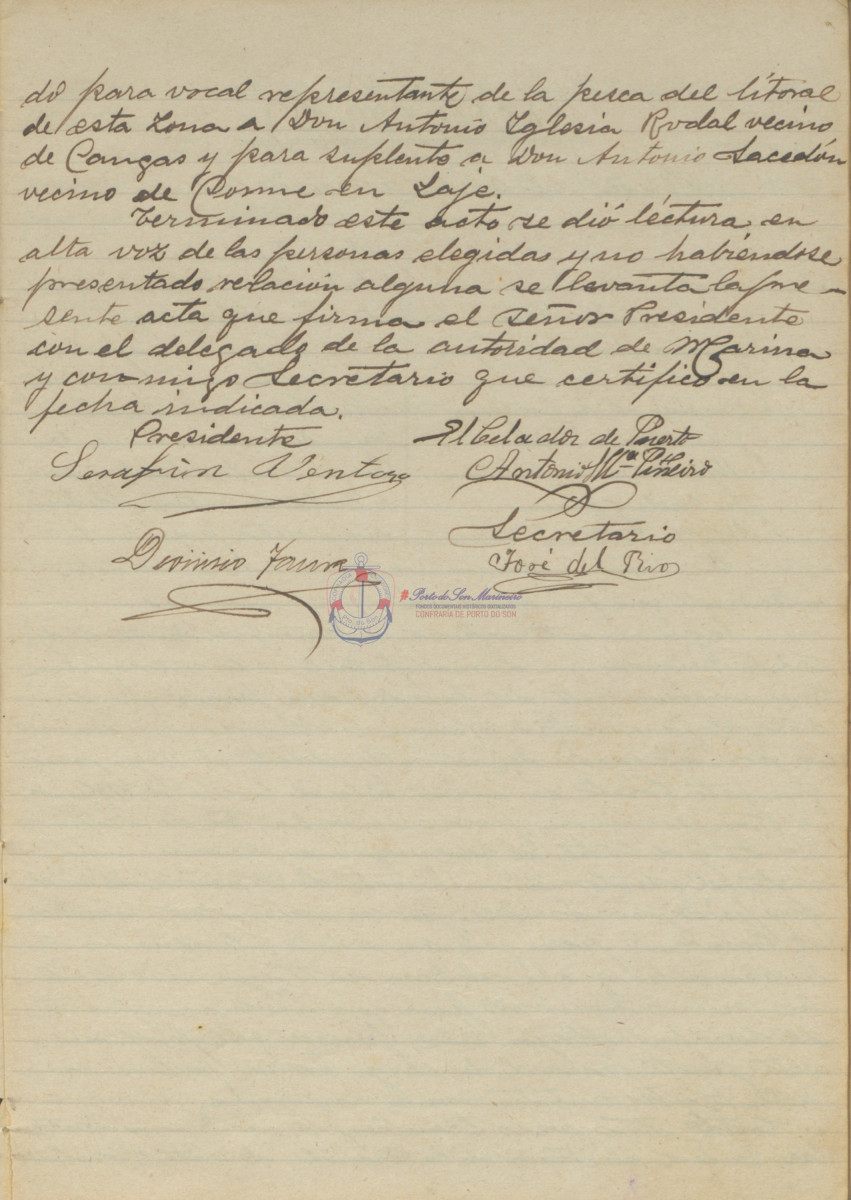 do para vocal representante de la pesca del lítoral
de esta zona a Don Antonio Iglesia Rodal vecino
de Cangas y para suplente a Don Antonio Sacedón
vecino de Corme en Laje.
Terminado este acto se dió léctura en
alta voz de las personas elegidas y no habiéndose
presentado relación alguna se levanta la pre-
sente acta que firma el señor Presidente
con el delegado de la autoridad de Marina
y conmigo Secretario que certifico en la
fecha indicada.
Presidente
El Celador de Puerto
Serafin Ventoso
Antonio Mª Piñeiro
Secretario
Dionisio
José del Rio
Porto do Son Marineiro
FONDOS DOCUMENTAIS HISTÓRICOS DIXITALIZADOS
CONFRARÍA DE PORTO DO SON